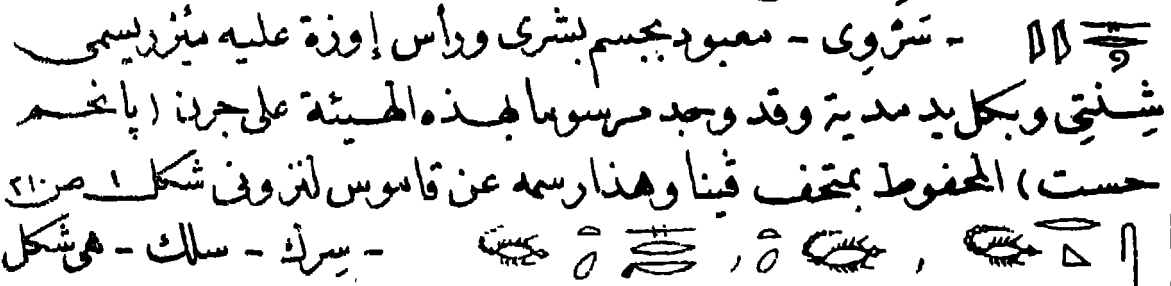 - سَرْوِى - معبود بجسم بشرى ورأس إوزة عليه مئزر يسمى
شِنتِى وبكل يد مدية وقد وجد مرسوما بهذه الهيئة على جرن (پانحم
حست) المحفوظ بمتحف ڤينا وهذا رسمه عن قاموس لنزونى شكل ١ ص ٢١٠
- سِرك - سلك - هى شكل